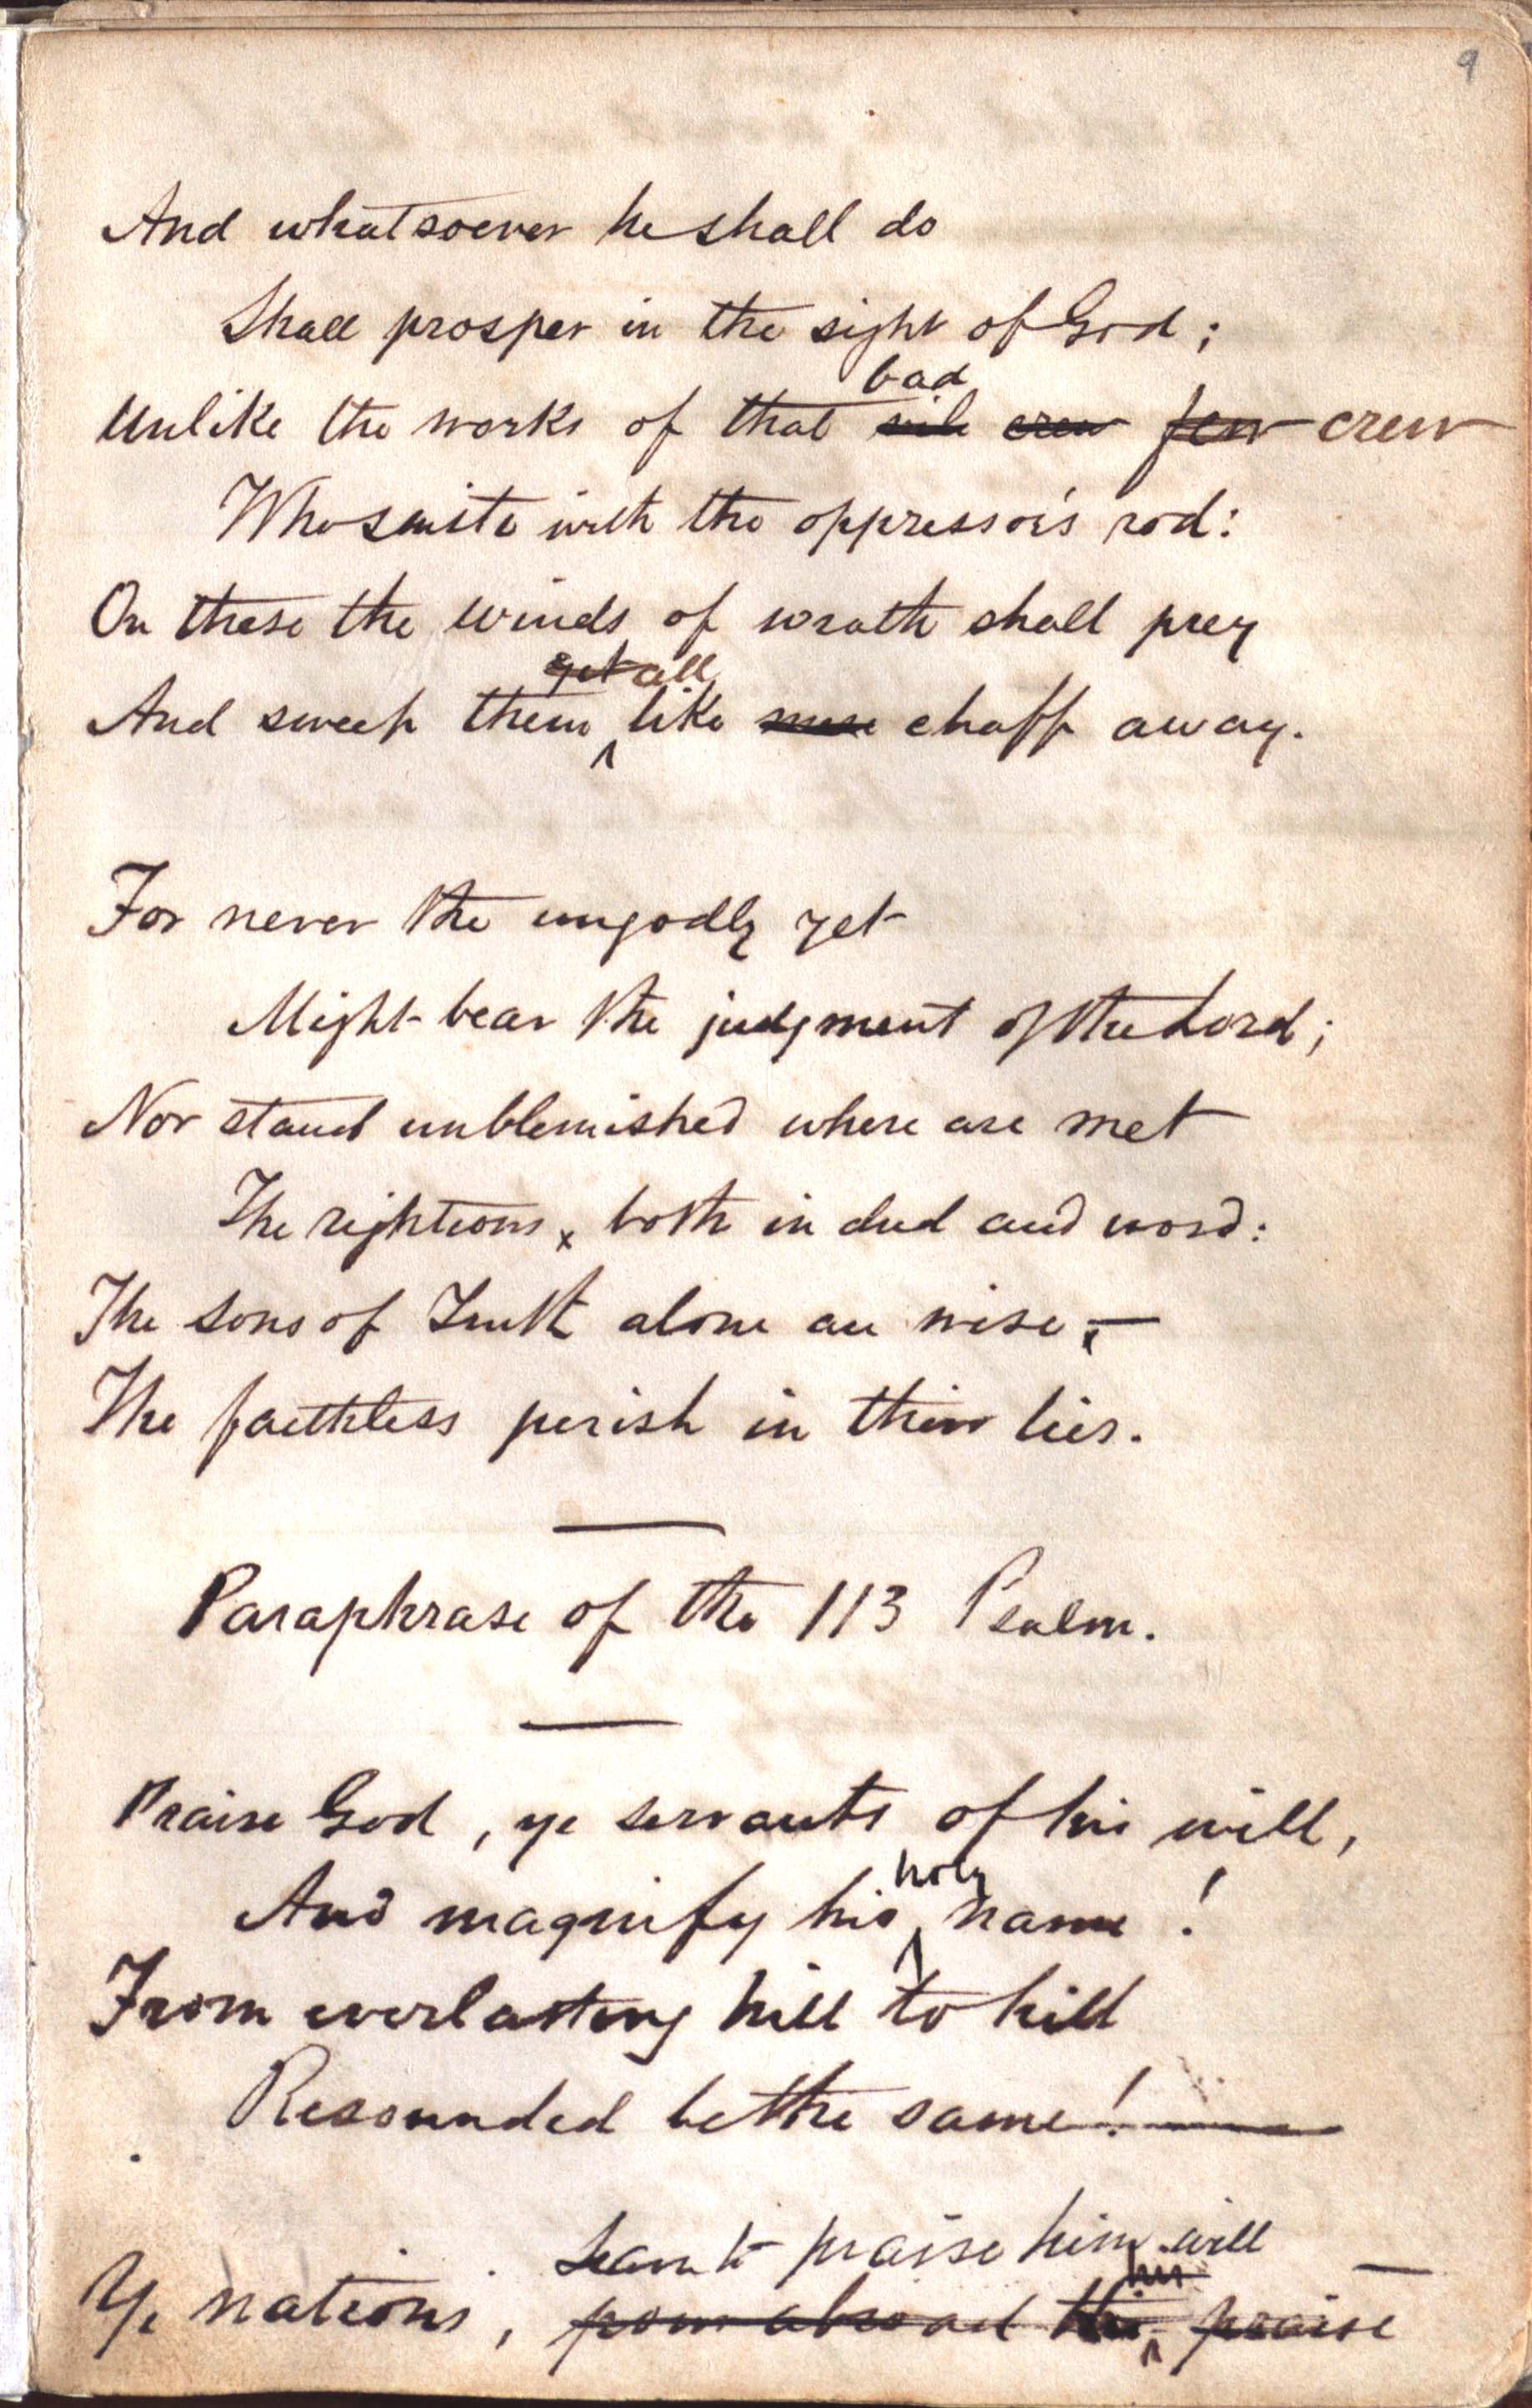 9
And whatsoever he shall do
Shall prosper in the sight of God;
bad
Unlike the works of that vile crew few crew
Who smite with the oppressor's rod:
On these the winds of wrath shall prey
yet all
And sweep them like chaff away.
For never the ungodly yet
Might bear the judgment of the Lord;
Nor stand unblemished where are met
The righteous, both in deed and word:
The sons of Truth alone are wise, —
The faithless perish in their lies.
Paraphrase of the 113 Psalm.
Praise God, ye servants of his will,
holy
And magnify his name!
From everlasting hill to hill
Resounded be the same! —
Learn to praise him will —
his
Ye nations, pour abroad praise